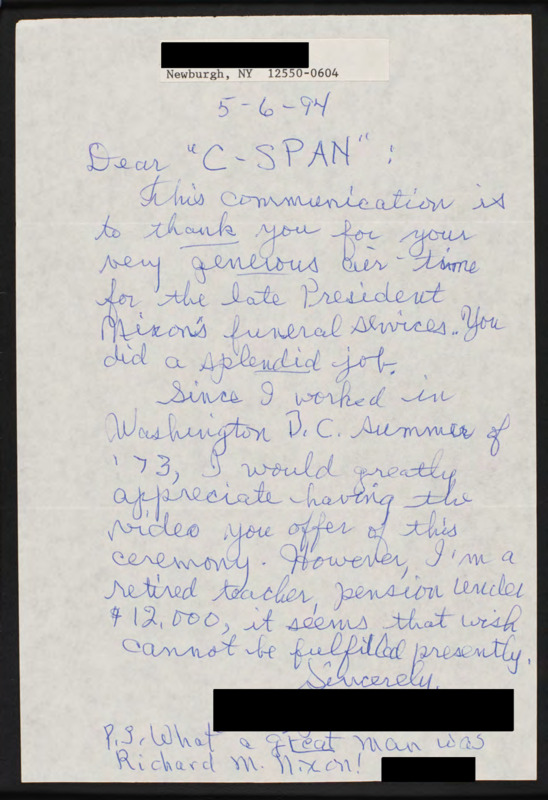 Newburgh, NY 12550-0604
5-6-94
Dear "C-SPAN":
This communication is
to thank you for your
very generous air-time
for the late President
Nixon's funeral services. You
did a splendid job.
Since I worked in
Washington D.C. summer of
'73, I would greatly
appreciate having the
video you offer of this
ceremony. However, I'm a
retired teacher, pension under
$12,000, it seems that wish
cannot be fulfilled presently.
Sincerely,
P.S. What a great man was
Richard M. Nixon!